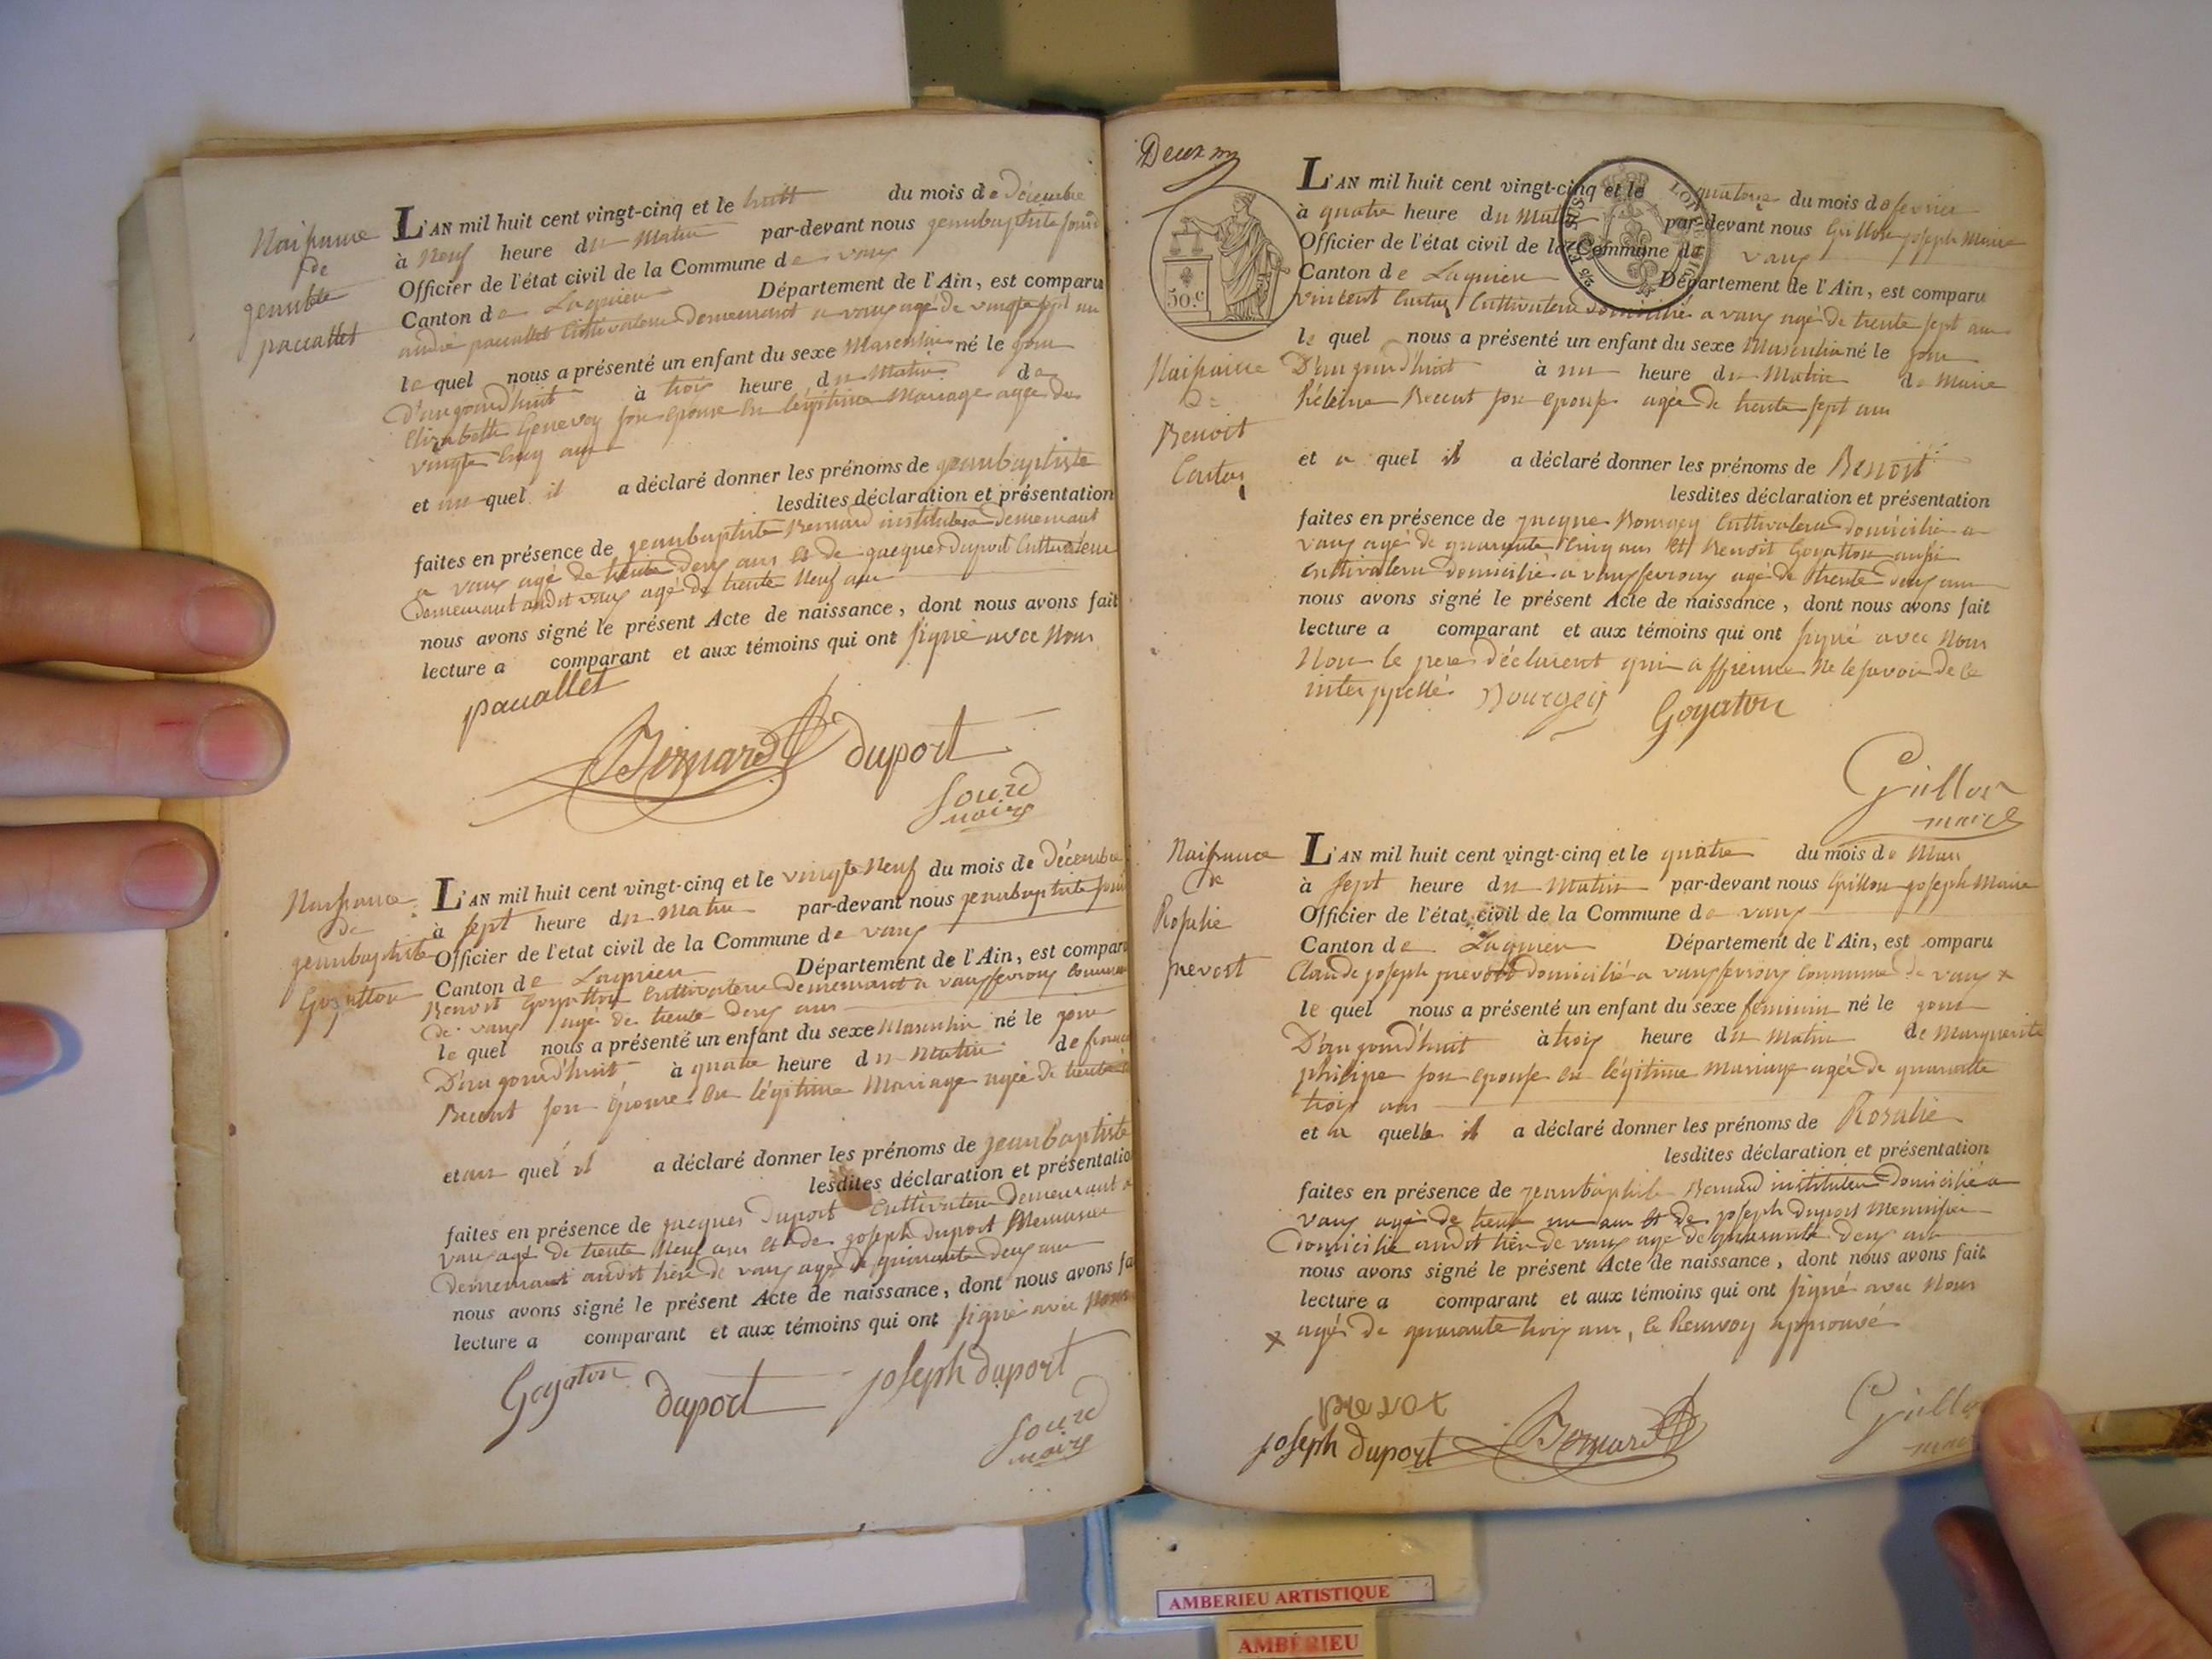 Naissance
de
jeanbte
paccallet
L'AN mil huit cent vingt-cinq et le huit du mois de Décembre
à Neuf heure du Matin par-devant nous jeanbaptiste
Officier de l'état civil de la Commune de vaux
Canton de Lagnieu Département de l'Ain, est comparu
andré paccallet Cultivateur Demeurant a vaux agé de vingt sept an
le quel nous a présenté un enfant du sexe Masculin né le jour
D'aujourd'huit à trois heure du Matin de
Elizabeth Genevoy son epouse En légitime Mariage agée de
vingte Cinq ans
et au quel il a déclaré donner les prénoms de jeanbaptiste
lesdites déclaration et présentation
faites en présence de jeanbaptiste Bernard instituteur demeurant
a vaux agé de trente Deux ans Et de jacques Duport Cultivateur
Demeurant audit vaux agé de trente Neuf an
nous avons signé le présent Acte de naissance, dont nous avons fait
lecture a comparant et aux témoins qui ont signé avec Nous
paccallet
Bernard duport
maire
Naissance
de
jeanbaptiste
Goyatton
L'AN mil huit cent vingt-cinq et le vingte Neuf du mois de Décembre
à sept heure du Matin par-devant nous jeanbaptiste
Officier de l'etat civil de la Commune de vaux
Canton de Lagnieu Département de l'Ain, est compar
Benoit Goyatton Cultivateur Demeurant a vauxfevroux Commune
De vaux agé de trente deux ans
le quel nous a présenté un enfant du sexe Masculin né le jour
D'aujourd'huit à quatre heure du Matin de
Son Epouse En légitime Mariage agée de trente
et au quel il a déclaré donner les prénoms de jeanbaptiste
lesdites déclaration et présentatio
faites en présence de jacques Duport Cultivateur Demeurant a
vaux agé de trente Neuf ans Et de joseph Duport Menuisier
Demeurant audit lieu de vaux agé de quarante deux an
nous avons signé le présent Acte de naissance, dont nous avons fa
lecture a comparant et aux témoins qui ont signé avec Nous
Goyaton duport joseph duport
maire
Deux
50.c
L'AN mil huit cent vingt-cinq et le quatorze du mois de fevrier
à quatre heure du Matin par-devant nous Grillon joseph Maire
Officier de l'état civil de la Commune de vaux
Canton de Lagnieu Département de l'Ain, est comparu
vincent Cultivateur domicilié a vaux agé de trente sept ans
le quel nous a présenté un enfant du sexe Masculin né le jour
D'aujourd'huit à un heure du Matin de Marie
son epouse agée de trente sept ans
Naissance
de
Benoit
et a quel il a déclaré donner les prénoms de Benoit
lesdites déclaration et présentation
faites en présence de jacque Bourgey Cultivateur domicilié a
vaux agé de quarante Cinq ans Et Benoit Goyatton aussi
Cultivateur Domicilié a vauxfevroux agé de trente deux ans
nous avons signé le présent Acte de naissance, dont nous avons fait
lecture a comparant et aux témoins qui ont signé avec Nous
Non le pere déclarent qui a affirmé Ne le savoir de ce
interppellé Bourgeis Goyaton
Grillon
maire
Naissance
de
Rosalie
prevost
L'AN mil huit cent vingt-cinq et le quatre du mois de Mars
à sept heure du Matin par-devant nous Grillon joseph Maire
Officier de l'état civil de la Commune de vaux
Canton de Lagnieu Département de l'Ain, est comparu
Claude joseph prevost domicilié a vauxfevroux Commune de vaux x
le quel nous a présenté un enfant du sexe féminin né le jour
D'aujourd'huit à trois heure du Matin de Marguerite
philipe son epouse en légitime Mariage agée de quarante
trois ans
et a quelle il a déclaré donner les prénoms de Rosalie
lesdites déclaration et présentation
faites en présence de jeanbaptiste Bernard instituteur Domicilié a
vaux agé de trente un ans Et De joseph Duport Menuisier
Domicilié audit lieu de vaux agé de quarante deux ans
nous avons signé le présent Acte de naissance, dont nous avons fait
lecture a comparant et aux témoins qui ont signé avec Nous
x agé de quarante trois ans, le Renvoy approuvé
prevot
joseph duport Bernard Grillon
AMBERIEU ARTISTIQUE
AMBÉRIEU